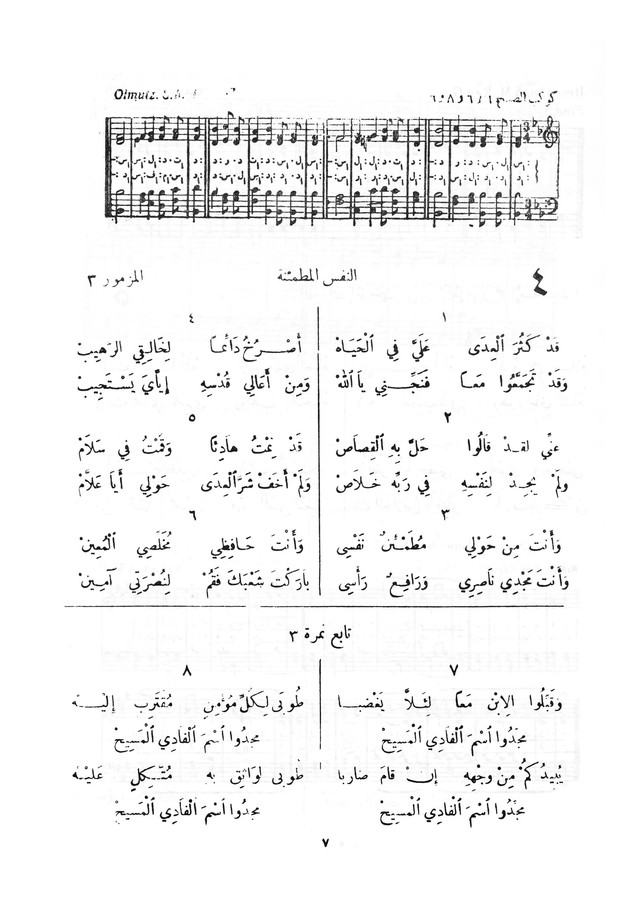 Olmutz. S.M.
كوكب الصبح ٦،٨،٦،٦
٤
النفس المطمئنة
المزمور ٣
١
قَدْ كَثُرَ ٱلْعِدَى عَلَيَّ فِي ٱلْحَيَاهْ
وَقَدْ تَجَمَّعُوا مَعًا فَنَجِّنِي يَا اَللهْ
٢
عنِّي لقد قَالُوا حَلَّ بِهِ ٱلْقِصَاصْ
ولَمْ يجِدْ لِنَفْسِهِ في رَبِّهِ خَلَاصْ
٣
وَأَنْتَ مِنْ حَوْلِي مُطَمْئِنٌ نَفْسِي
وَأَنْتَ مَجْدِي نَاصِرِي وَرَافِعٌ رَأْسِي
٤
أَصْرُخُ دَائمًا لِخَالِقِي الرَّهِيبْ
وَمِنْ أَعَالِي قُدْسِهِ إِيَّايَ يَسْتَجِيبْ
٥
قَدْ نِمْتُ هَادِئًا وَقُمْتُ فِي سَلَامْ
وَلَمْ أَخَفْ شَرَّ ٱلْعِدَى حَوْلِي أَيَا عَلَّامْ
٦
وَأَنْتَ حَافِظِي مُخَلِّصِي ٱلْمُعِينْ
بَارَكْتَ شَعْبَكَ فَقُمْ لِنُصْرَتِي آمِينْ
تابع نمرة ٣
٧
وَقَبِّلُوا الِابْنَ مَعًا لِئَلَّا يَغْضَبَا
مَجِّدُوا ٱسْمَ ٱلْفَادِي ٱلْمَسِيحْ
يُبِيدُكُمْ مِنْ وَجْهِهِ إِنْ قَامَ ضاربا
مَجِّدُوا ٱسْمَ ٱلْفَادِي ٱلْمَسِيحْ
٨
طُوبَى لِكُلِّ مُؤْمِنٍ مُقْتَرِبٍ إِلَيْهِ
مجدُوا ٱسْمَ ٱلْفَادِي ٱلْمَسِيحْ
طُوبى لوَاثِقٍ بِهِ مُتَّكِلٍ عَلَيْهِ
مجدُوا ٱسْمَ ٱلْفَادِي ٱلْمَسِيحْ
٧